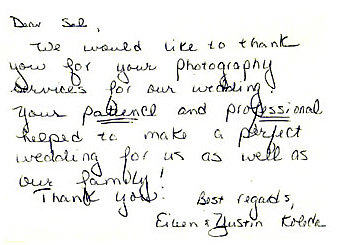 Dear Sal,
We would like to thank
you for your photography
services for our wedding.
Your patience and professional
helped to make a perfect
wedding for us as well as
our family!
Thank you! Best regards,
& Justin